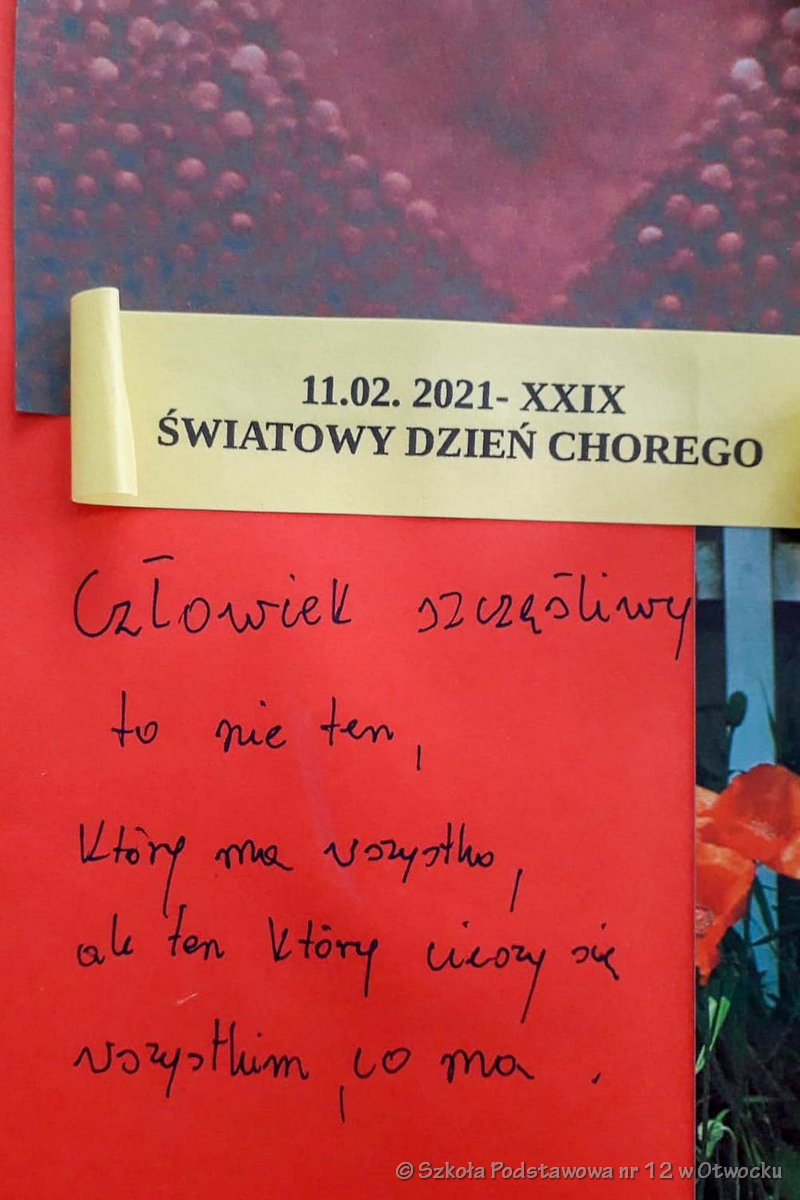 11.02. 2021- XXIX
ŚWIATOWY DZIEŃ CHOREGO
Człowiek szczęśliwy
to nie ten,
który ma wszystko,
ale ten który cieszy się
wszystkim, co ma.
© Szkoła Podstawowa nr 12 w Otwocku